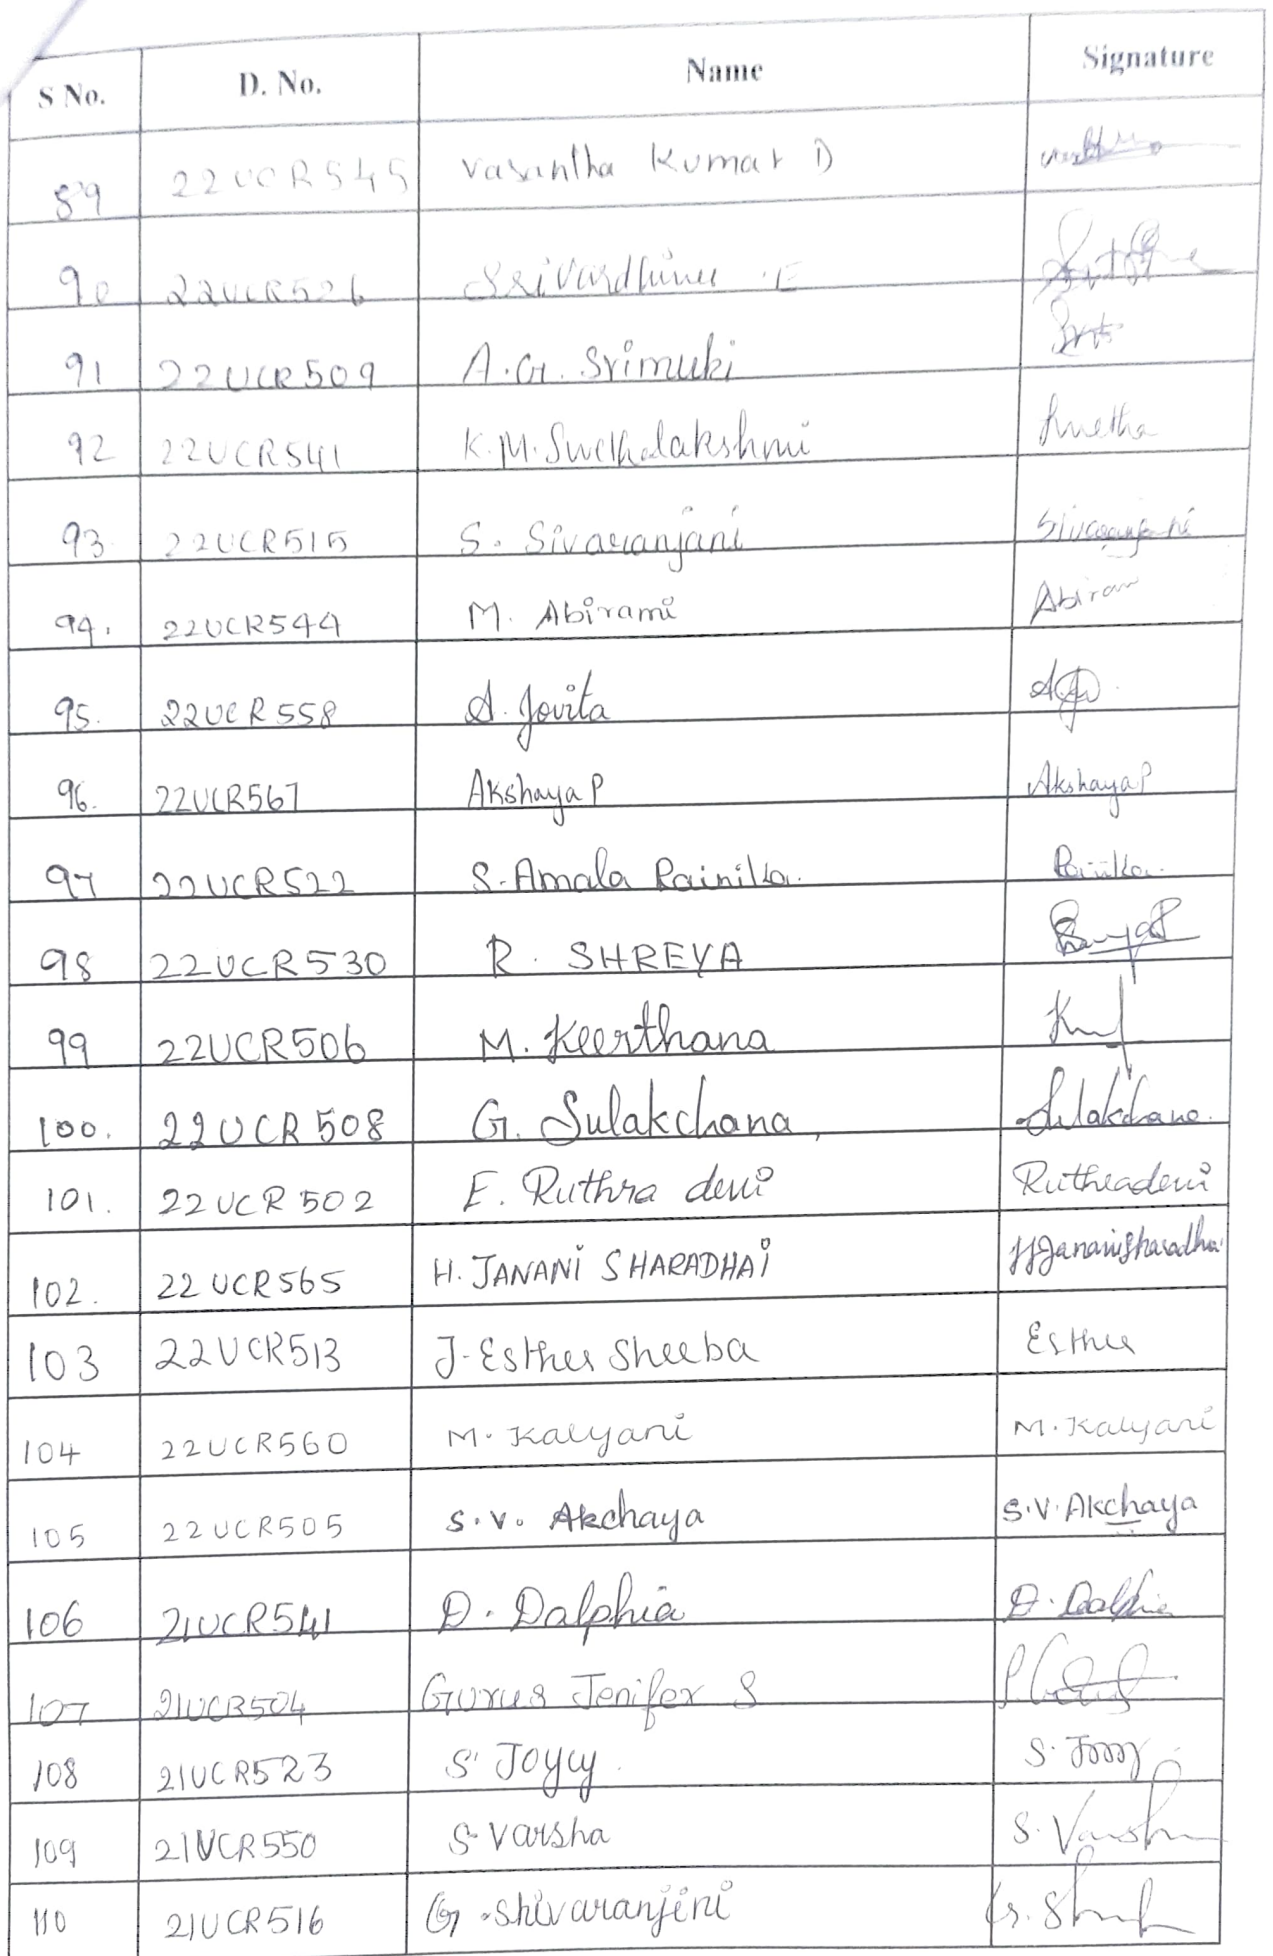 S No. D. No. Name Signature
89 22UCR545 Vasantha Kumar D
90 22UCR526 E
91 22UCR509 A.G. Srimuki
92 22UCR541 K.M. Swethalakshmi Swetha
93 22UCR515 S. Sivaranjani Sivaranjani
94. 22UCR544 M. Abirami Abiram
95. 22UCR558 A. Jovita
96. 22UCR567 Akshaya P Akshaya P
97 22UCR522 S. Amala Rainilla. Rainilla.
98 22UCR530 R. SHREYA
99 22UCR506 M. Keerthana
100. 22UCR508 G. Sulakchana, Sulakchana.
101. 22UCR502 E. Ruthra devi Ruthradevi
102. 22UCR565 H. JANANI SHARADHAI H Janani Sharadhai
103 22UCR513 J. Esther Sheeba Esther
104 22UCR560 M. Kalyani M. Kalyani
105 22UCR505 S.V. Akchaya S.V. Akchaya
106 21UCR541 D. Dalphia D. Dalphia
107 21UCR504 Gurus Jenifer S
108 21UCR523 S. Joycy. S.
109 21UCR550 S. Varsha S. Varsh
110 21UCR516 G. Shivaranjini G.